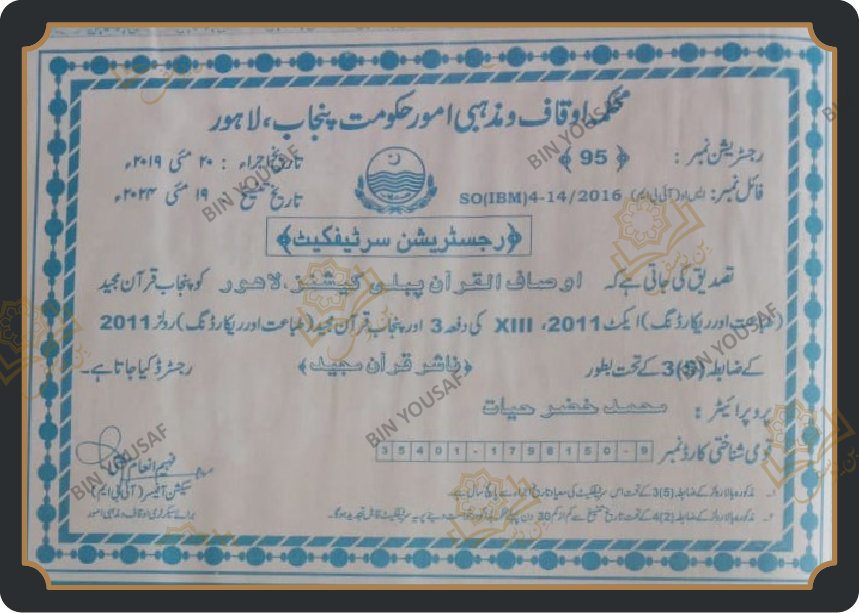 محکمہ اوقاف و مذہبی امور حکومت پنجاب، لاہور
رجسٹریشن نمبر : ﴿ 95 ﴾
تاریخ اجراء : ۲۰ مئی ۲۰۱۹ء
فائل نمبر: ایس او (آئی بی ایم) SO(IBM)4-14/2016
تاریخ تنسیخ ۱۹ مئی ۲۰۲۴ء
﴿رجسٹریشن سرٹیفکیٹ﴾
تصدیق کی جاتی ہے کہ اوصاف القرآن پبلی کیشنز، لاہور کو پنجاب قرآن مجید
(طباعت اور ریکارڈنگ) ایکٹ 2011، XIII کی دفعہ 3 اور پنجاب قرآن مجید (طباعت اور ریکارڈنگ) رولز 2011
کے ضابطہ (5)3 کے تحت بطور ﴿ناشر قرآن مجید﴾ رجسٹرڈ کیا جاتا ہے۔
پروپرائیٹر : محمد خضر حیات
قومی شناختی کارڈ نمبر 35401-1798150-9
سیکشن آفیسر (آئی بی ایم)
برائے سیکرٹری اوقاف و مذہبی امور
۱۔ مذکورہ بالا رولز کے ضابطہ (5)3 کے تحت اس سرٹیفکیٹ کی معیاد تاریخ اجراء سے پانچ سال ہے۔
۲۔ مذکورہ بالا رولز کے ضابطہ (2)4 کے تحت تاریخ تنسیخ سے کم از کم 30 دن پہلے
BIN YOUSAF
BIN YOUSAF
BIN YOUSAF
BIN YOUSAF
BIN YOUSAF